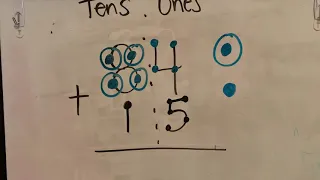 Tens . Ones
8 : 4
+ 1 : 5